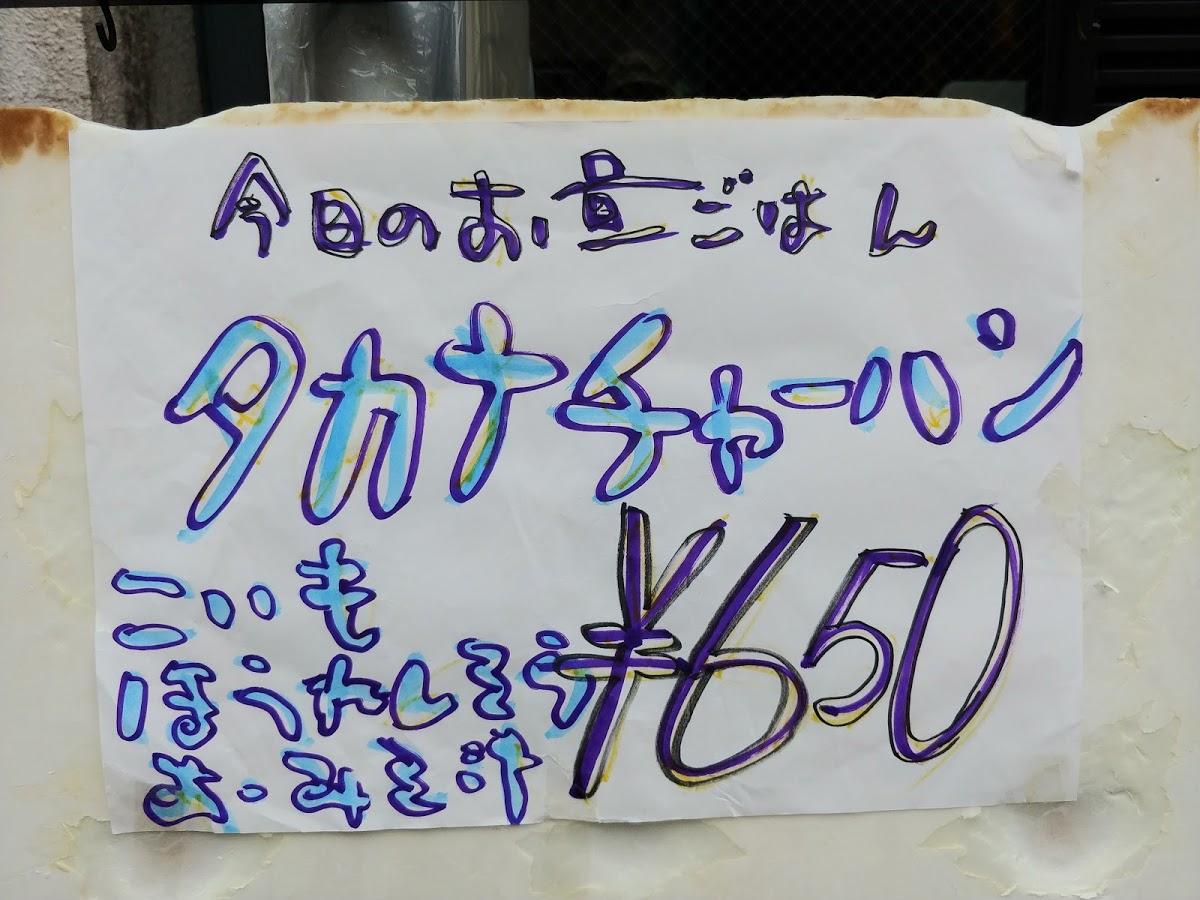 今日のお昼ごはん
タカナチャーハン
こいも
ほうれんそう
おみそ汁
¥650